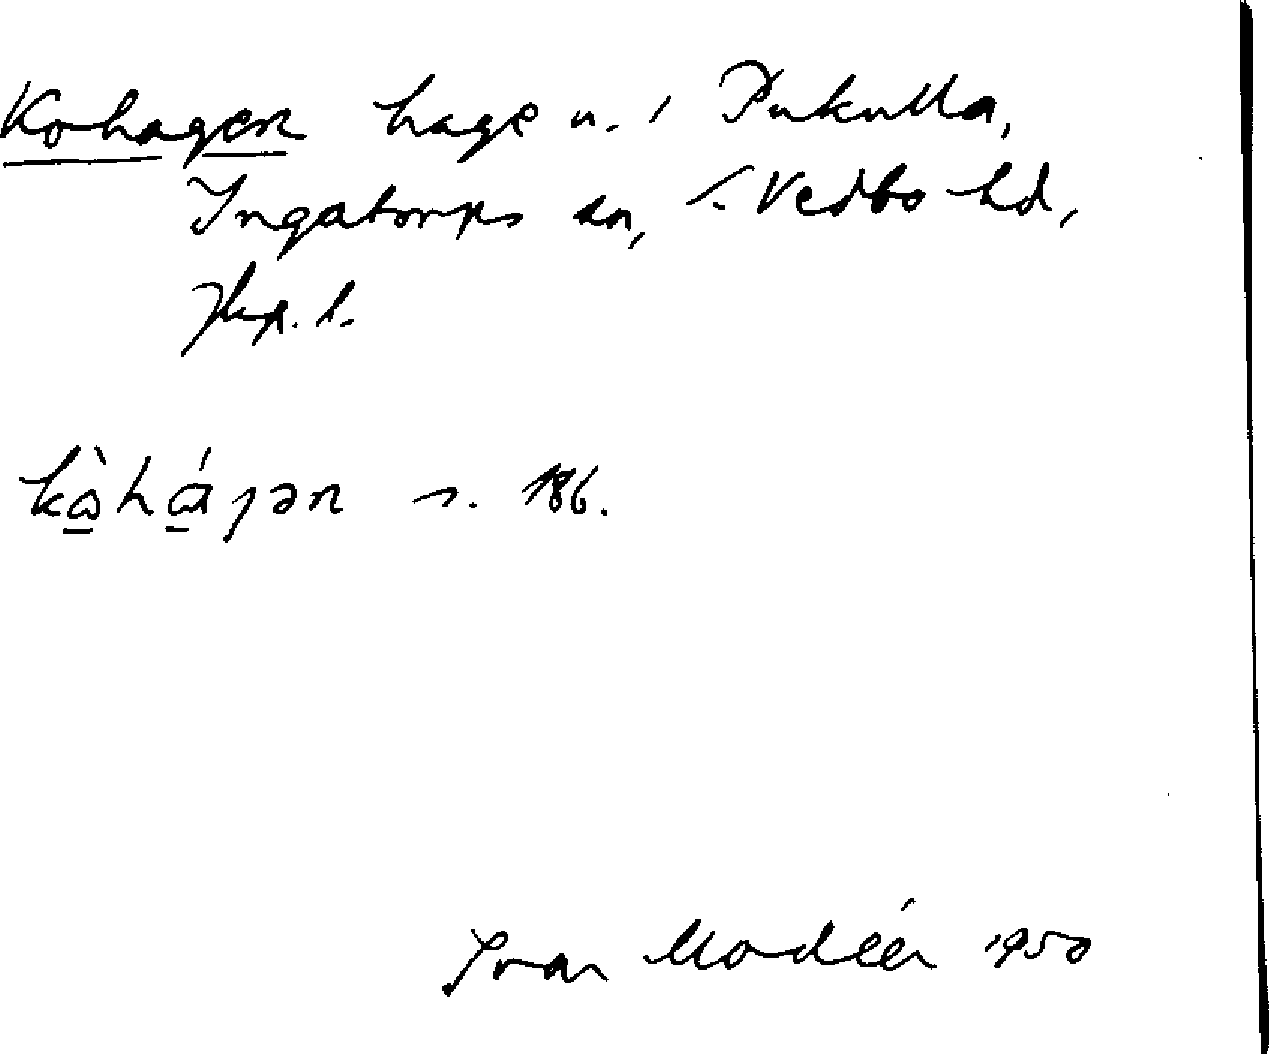 Kohagen hage u. i Pukulla,
Ingatorps sn, S. Vedbo hd,
Jkp. l.
kὼhάjən s. 186.
Ivar Modéer 1950